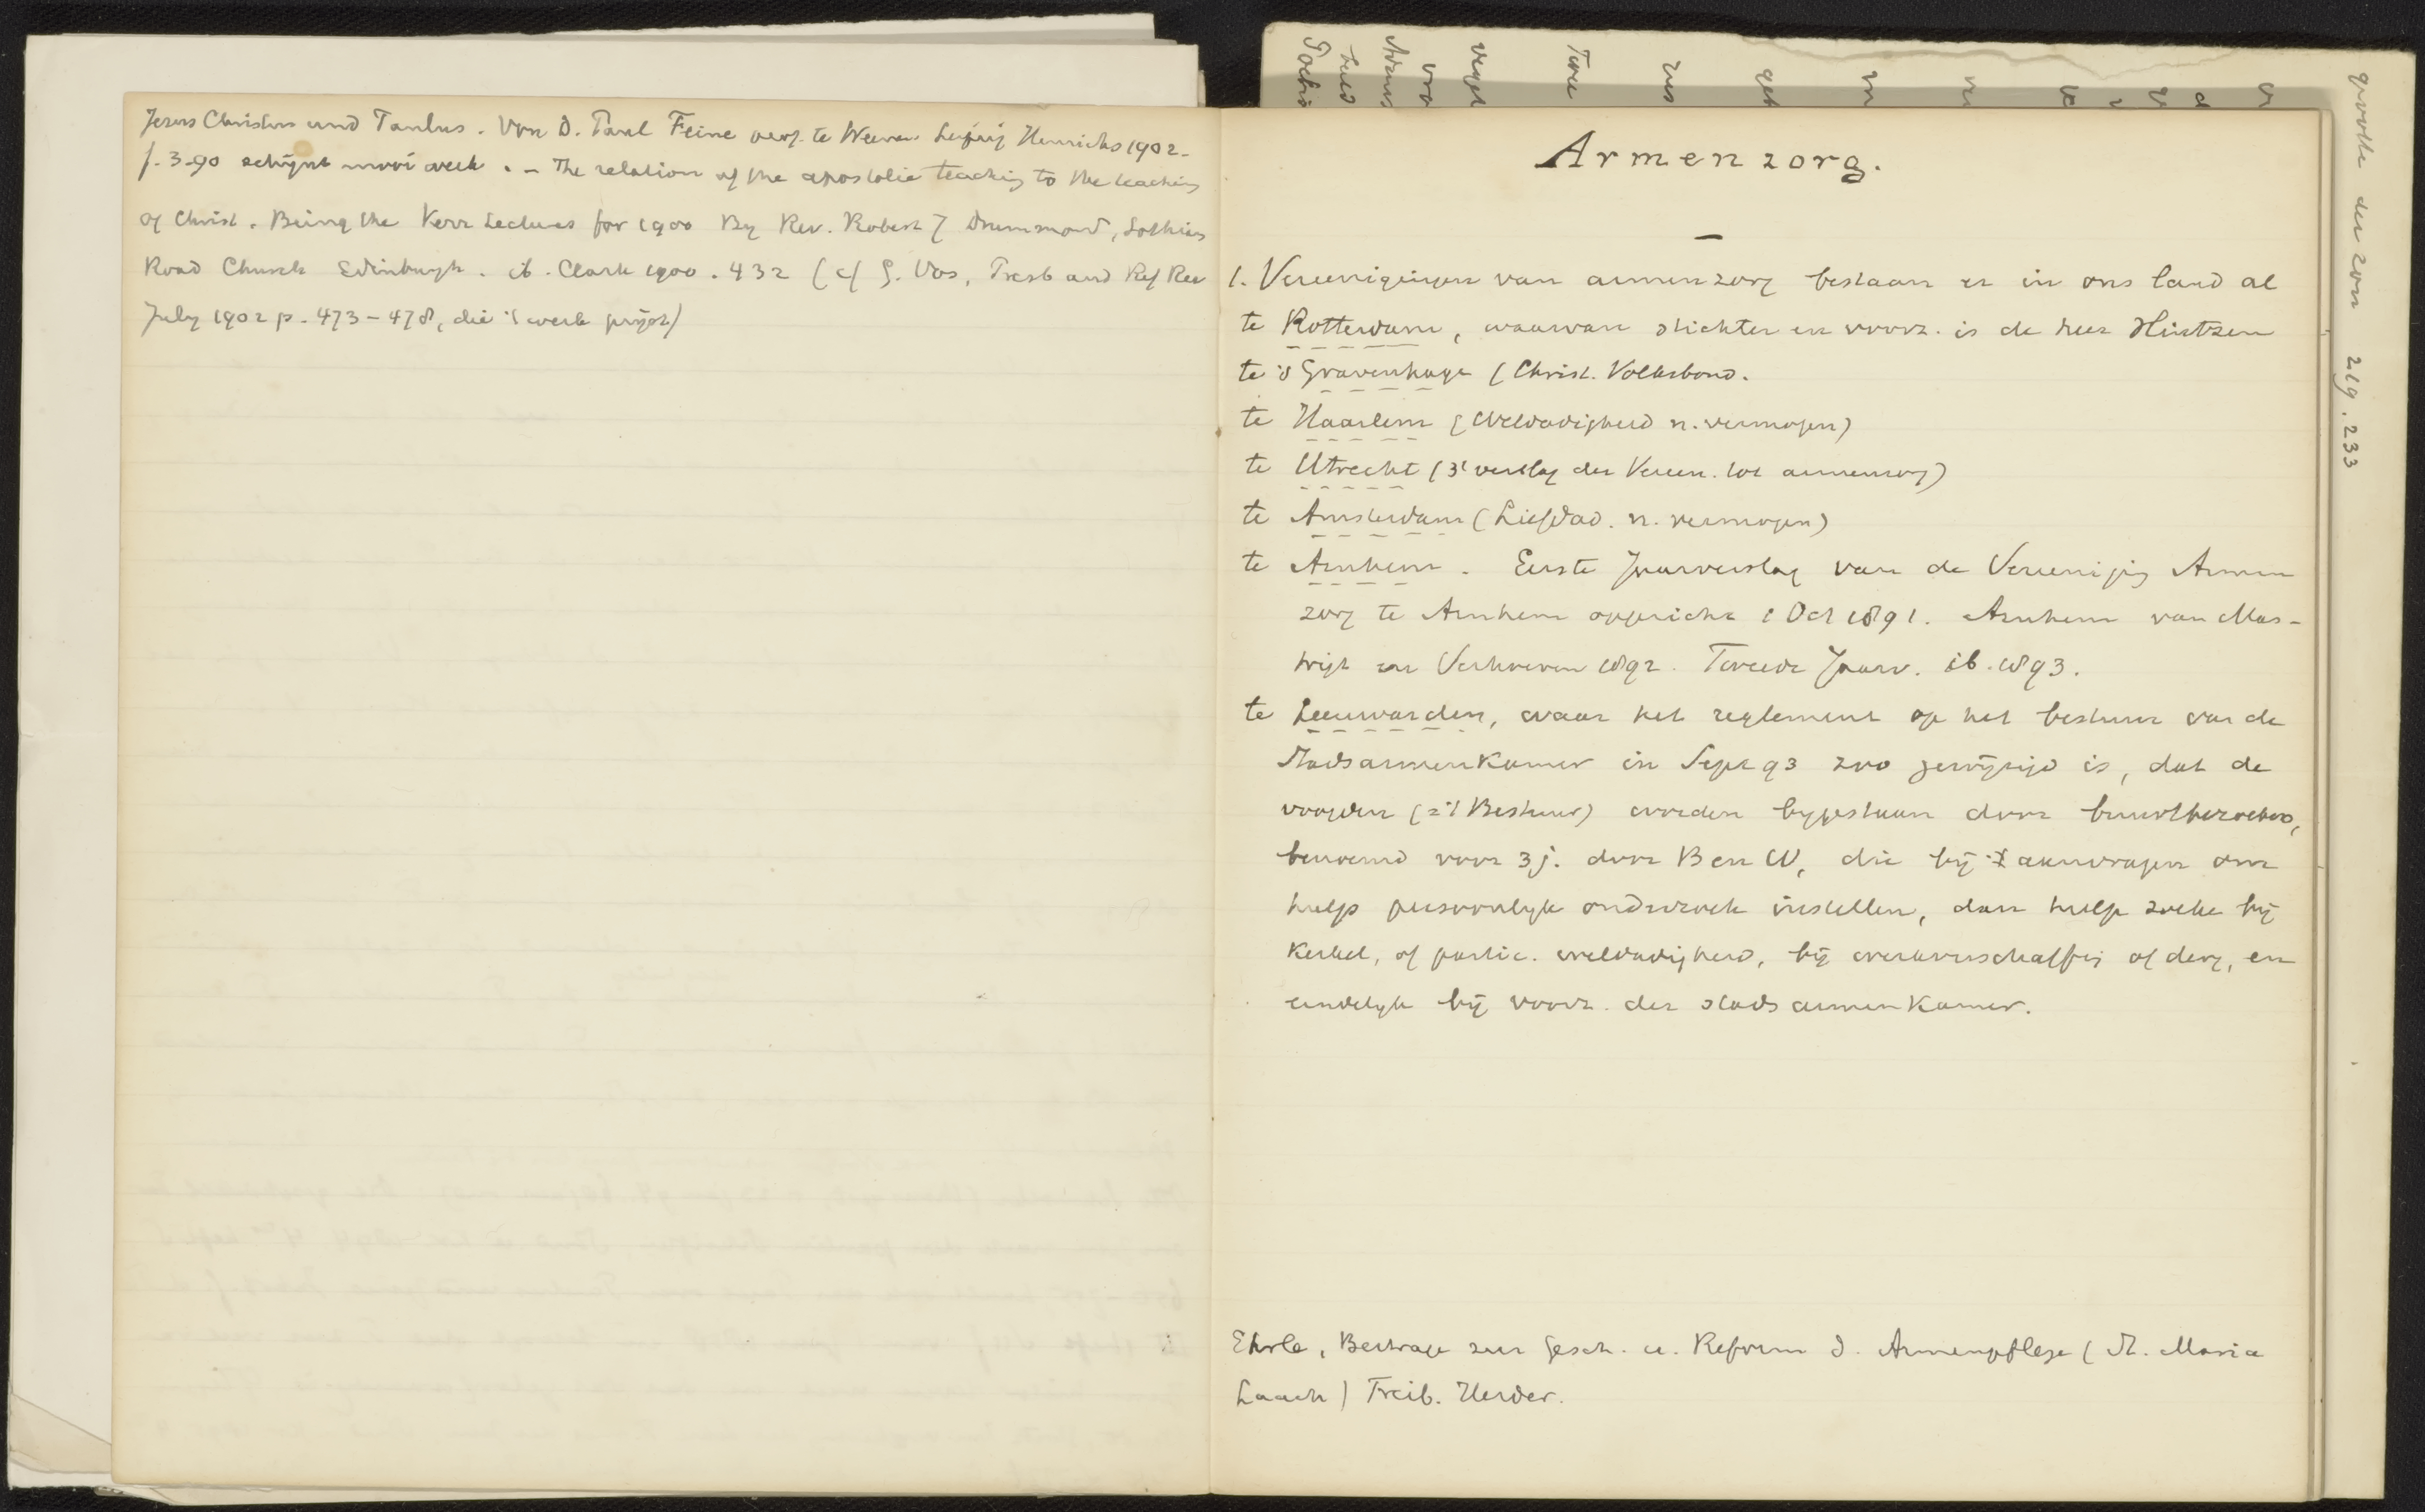 Jezus Christus und Paulus. Von D. Paul Feine Prof. te Weenen Leipzig Hinrichs 1902.
f. 3-90 schijnt mooi werk. - The relation of the apostolic teaching to the teaching
of Christ. Being the Kerr Lectures for 1900 By Rev. Robert J Drummond, Lothian
Road Church Edinburgh. ib. Clark 1900. 432 (cf G. Vos, Presb and Ref Rev
July 1902 p. 473-478, die 't werk prijst)
Armenzorg.
1. Vereenigingen van armenzorg bestaan er in ons land al
te Rotterdam, waarvan stichter en voorz. is de heer Hintzen
te 's Gravenhage (Christ. Volksbond.
te Haarlem (Weldadigheid n. vermogen)
te Utrecht (3e verslag der Vereen. tot armenzorg)
te Amsterdam (Liefdad. n. vermogen)
te Arnhem. Eerste Jaarverslag van de Vereenigig Armen
zorg te Arnhem opgericht 1 Oct 1891. Arnhem van Mas-
trigt en Verhoeven 1892. Tweede Jaarv. ib. 1893.
te Leeuwarden, waar het reglement op het bestuur van de
Stadsarmenkamer in Sept 93 zoo gewijzigd is, dat de
voogden (= 't Bestuur) worden bygestaan door buurtbezoekers,
benoemd voor 3 j. door B en W, die bij aanvragen om
hulp persoonlyk onderzoek instellen, dan hulp zoeke bij
Kerkel, of partic. weldadigheid, bij werkverschaffig of derg, en
eindelyk bij voorz. der stads armenkamer.
Ehrle, Beitrage zur Gesch. u. Reform d. Armenpflege (St. Maria
Laach) Freib. Herder.
grootte der zon 219. 233